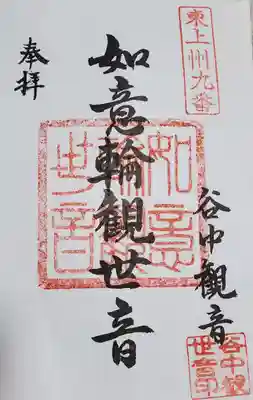 東上州九番
奉拝
如意輪観世音
谷中観音
如意
輪観
世音
谷中観
世音印